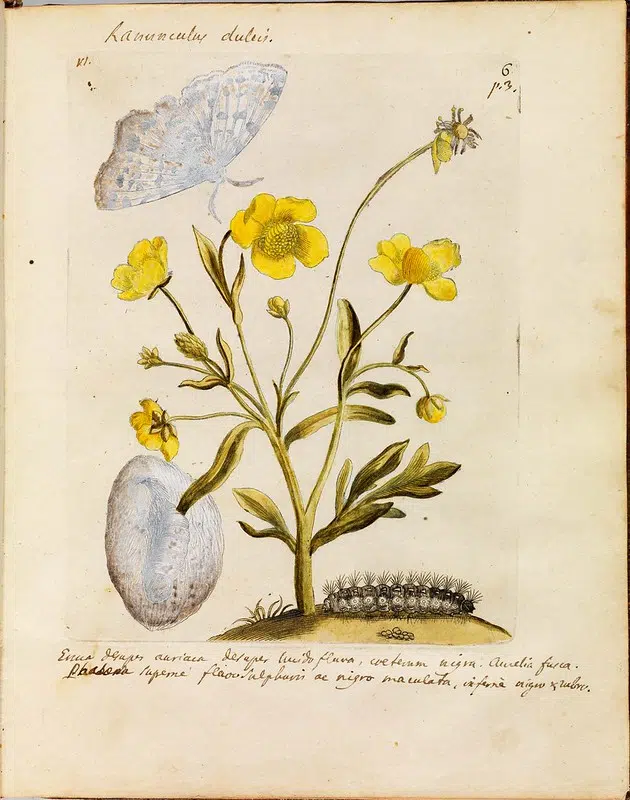 Ranunculus dulcis.
VI.
6
p. 3.
Eruca desuper auriaca desuper lucido flava, coeterum nigra. Aurelia fusca.
Phalena superne flavo sulphuris ac nigro maculata, inferne nigro & rubro.